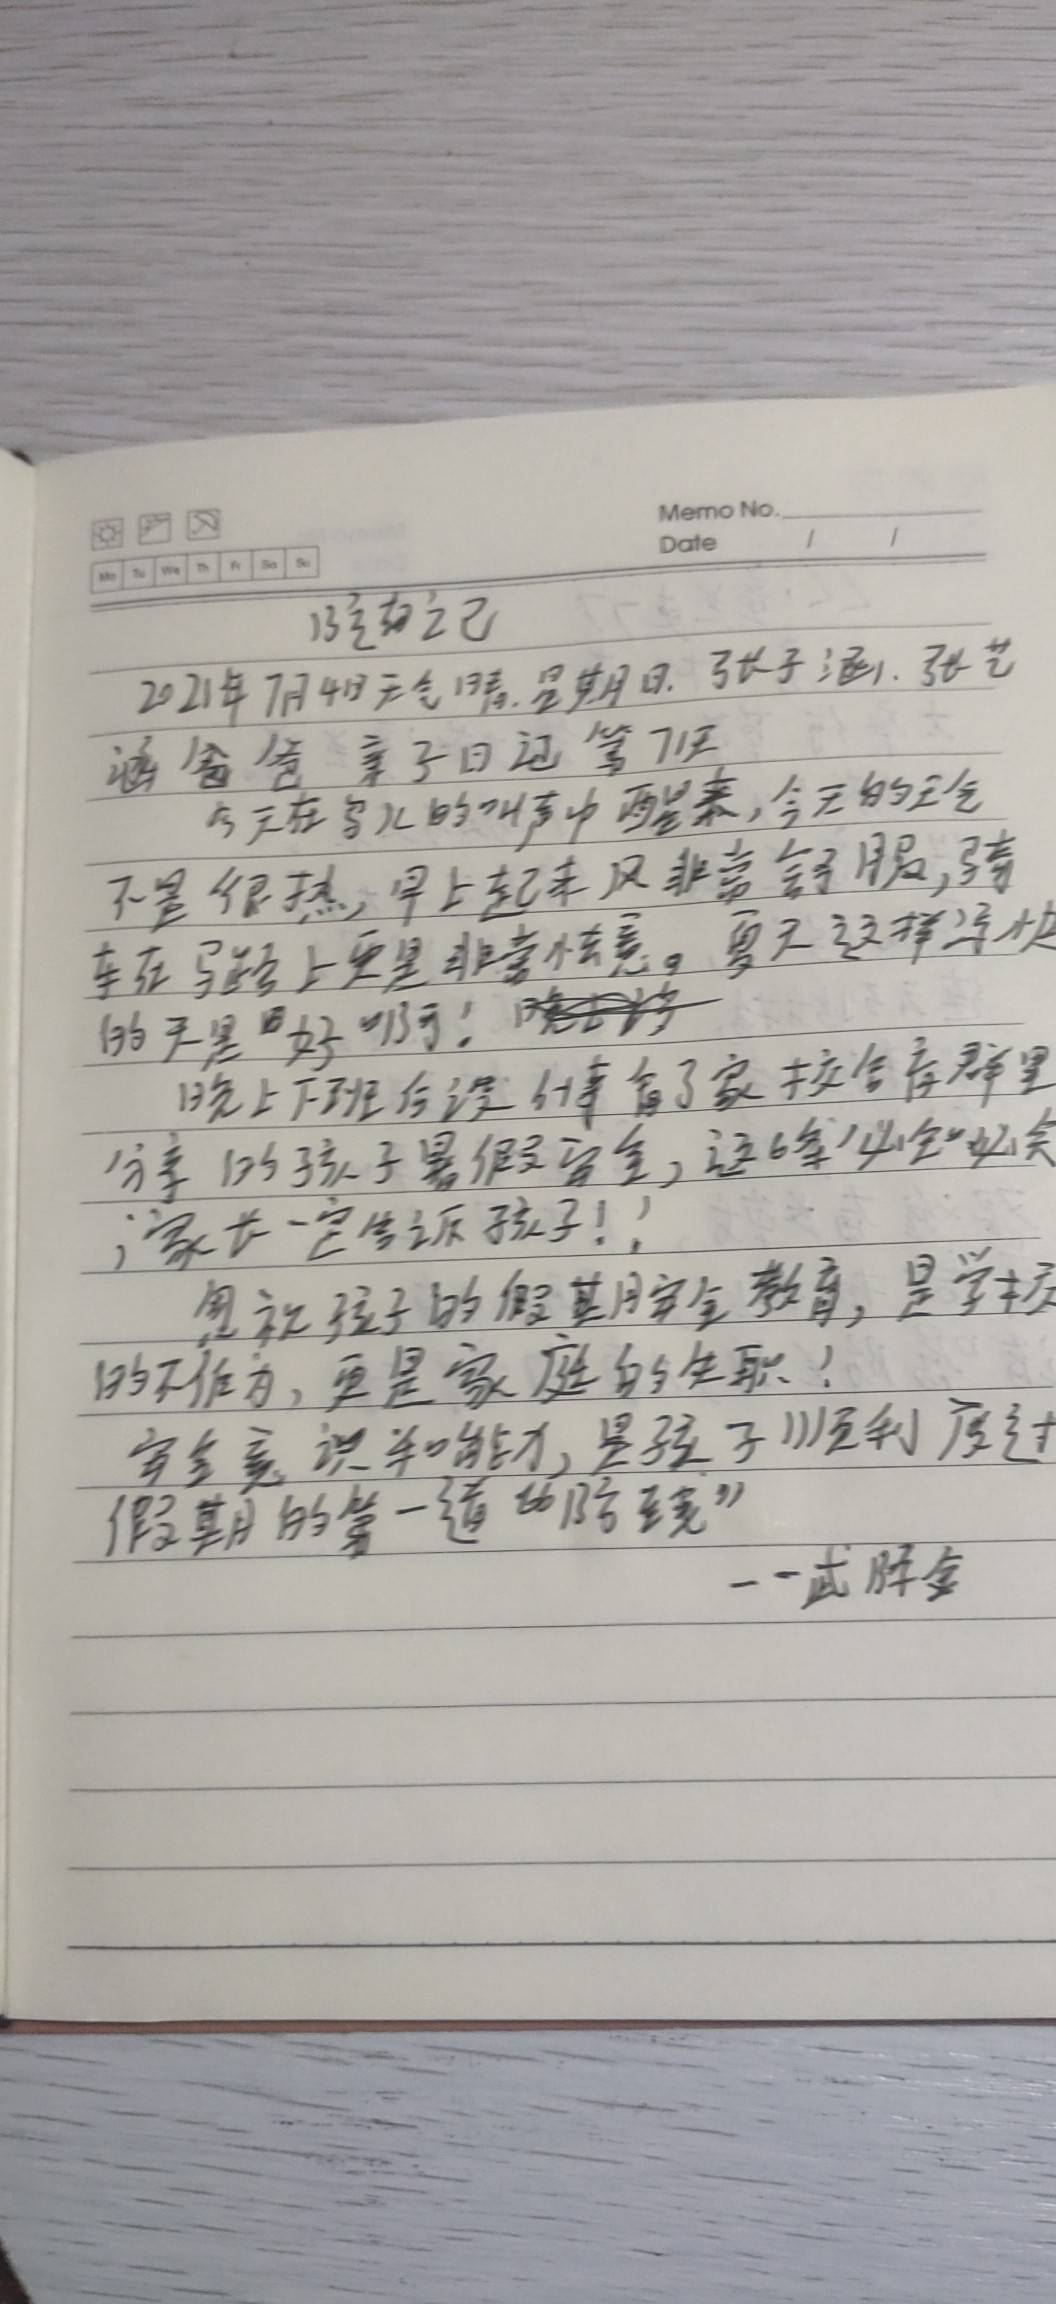 Memo No.
Date / /
Mo Tu We Th Fr Sa Su
随笔日记
2021年7月4日天气晴.星期日.张子涵.张艺
涵爸爸亲子日记第71天
今天在鸟儿的叫声中醒来,今天的天气
不是很热,早上起来风非常舒服,骑
车在马路上更是非常惬意。夏天这样凉快
的天是好啊!
晚上下班后没什事看了家校合育群里
分享的孩子暑假安全,这6条"必知"必会
,家长一定告诉孩子!
忽视孩子的假期安全教育,是学校
的不作为,更是家庭的失职!
安全意识和能力,是孩子顺利度过
假期的第一道"防线"